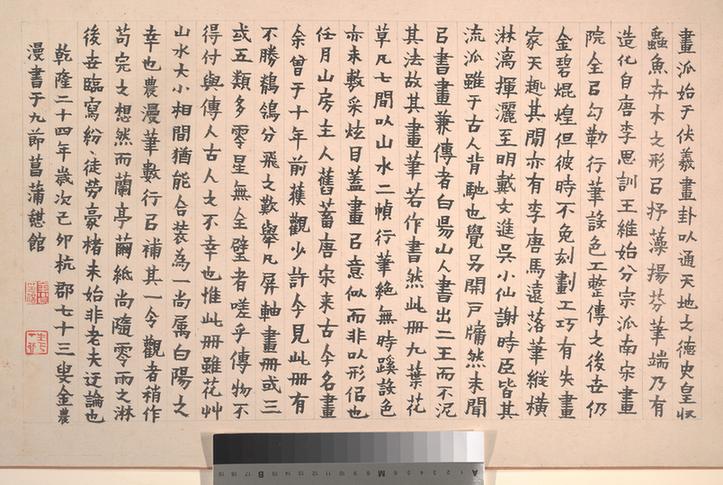 畫派始于伏羲畫卦以通天地之德史皇収
蟲魚卉木之形㠯抒藻揚芬筆端乃有
造化自唐李思訓王維始分宗派南宋畫
院全㠯勾勒行筆設色工整傳之後世仍
金碧焜煌但彼時不免刻劃工巧有失畫
家天趣其閒亦有李唐馬遠落筆縱橫
淋漓揮灑至明戴文進吳小仙謝時臣皆其
流派雖于古人背馳也覺另開戸牖然未聞
㠯書畫兼傳者白昜山人書出二王而不泥
其法故其畫筆若作書然此冊九葉花
草凡七間以山水二幀行筆絶無時蹊設色
亦未敷采炫目蓋畫㠯意似而非以形侣也
任月山房主人舊蓄唐宋来古今名畫
余曾于十年前獲觀少許今見此冊有
不勝鶺鴒分飛之歎舉凡屏軸畫冊或三
或五類多零星無全璧者嗟乎傳物不
得付與傳人古人之不幸也惟此冊雖花艸
山水大小相間猶能合裝為一尚属白陽之
幸也農漫筆數行㠯補其一令觀者稍作
苟完之想然而蘭亭繭紙尚隨零雨之淋
後世臨寫紛、徒勞豪楮未始非老夫迂論也
乾隆二十四年歲次己卯杭郡七十三叟金農
漫書于九節菖蒲憩館